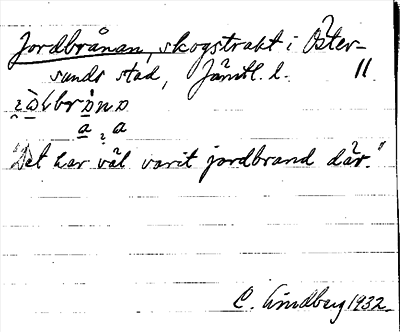 Jordbrånan, skogstrakt i Öster-
sunds stad, Jämtl. l. 11
"Det har väl varit jordbrand där."
C. Lindberg 1932.